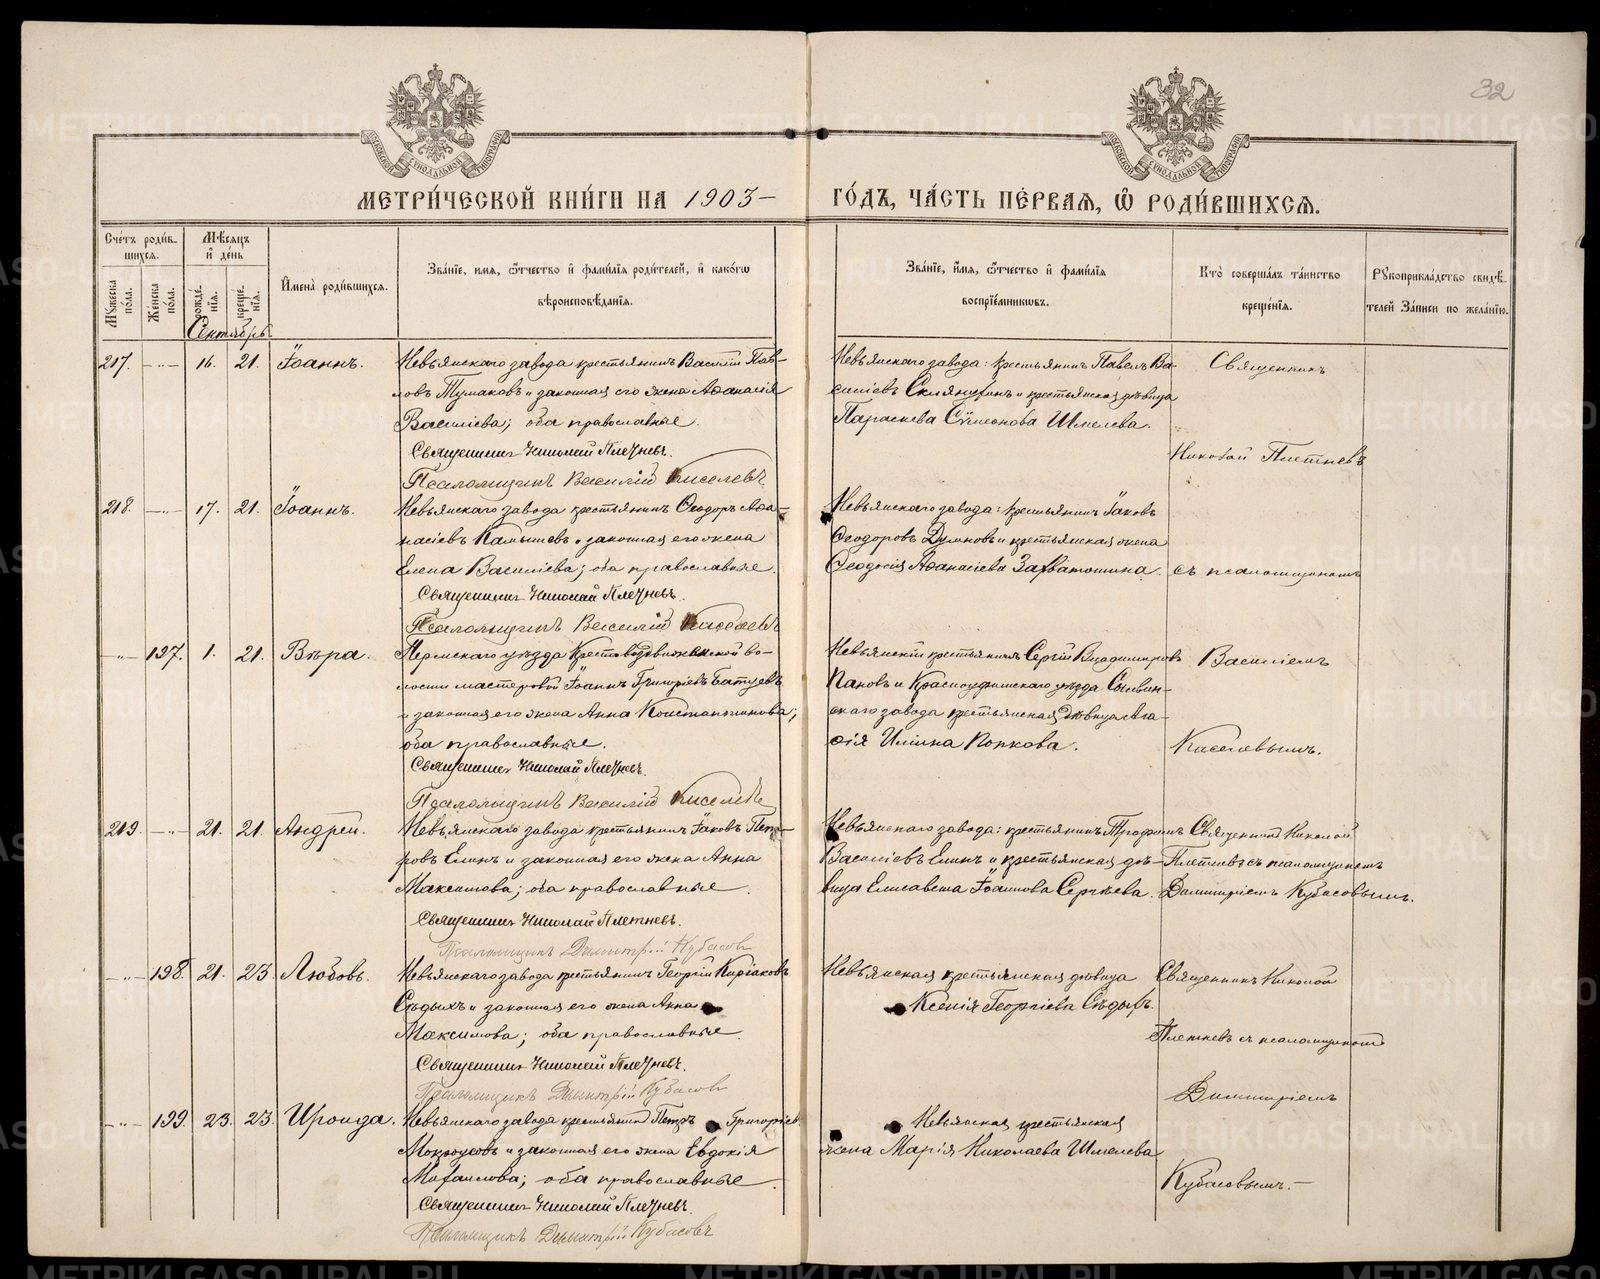 32
МЕТРИ́ЧЕСКОЙ КНИ́ГИ НА 1903 –
ГО́ДЪ, ЧА́СТЬ ПЕ́РВАЯ, Ѽ РОДИ́ВШИХСЯ.
Сче́тъ роди́в-
шихся.
Мѣ́сяцъ
и҆ де́нь
И҆мена̀ роди́вшихся.
Зва́нїе, имя, ѻ҆́тчество и҆ фами́лїя роди́телей, и҆ како́гѡ
вѣроисповѣ́данїя.
Зва́нїе, и҆́мя, ѻ҆́тчество и҆ фами́лїя
воспрїе́мниковъ.
Кто̀ соверша́лъ та́инство
креще́нїя.
Рꙋкоприкла́дство свидѣ́-
телей За́писи по жела́нїю.
Мꙋ́жеска
по́ла.
Же́нска
по́ла.
рожде́-
нїя.
креще́-
нїя.
Сентябрь
217. – „ – 16. 21. Іоаннъ.
Невьянскаго завода крестьянинъ Василій Пав-
ловъ Тумаковъ и законная его жена Аѳанасія
Василіева; оба православные.
Священникъ Николай Плетневъ.
Псаломщикъ Василій Киселевъ
Невьянскаго завода: крестьянинъ Павелъ Ва-
силіевъ и крестьянская дѣвица
Параскева Сѵмеонова Шмелева.
Священникъ
Николай Плетневъ
218. – „ – 17. 21. Іоаннъ.
Невьянскаго завода крестьянинъ Ѳеодоръ Аѳа-
насіевъ и законная его жена
Елена Василіева; оба православные.
Священникъ Николай Плетневъ.
Псаломщикъ Василій Киселевъ
Невьянскаго завода: крестьянинъ Іаковъ
Ѳеодоровъ и крестьянская жена
Ѳеодосія Аѳанасіева Захватошина.
съ псаломщикомъ
– „ – 197. 1. 21. Вѣра.
Пермскаго уѣзда Крестовоздвиженской во-
лости мастеровой Іоаннъ Григоріевъ Батуевъ
и законная его жена Анна Константинова;
оба православные.
Священникъ Николай Плетневъ.
Псаломщикъ Василій Киселевъ
Невьянскій крестьянинъ Сергій Владиміровъ
Пановъ и Красноуфимскаго уѣзда Сылвин-
скаго завода крестьянская дѣвица Ага-
фія Иліина Попкова.
Василіемъ
Киселевымъ.
219. – „ – 21. 21. Андрей.
Невьянскаго завода крестьянинъ Іаковъ Пет-
ровъ Елинъ и законная его жена Анна
Максимова; оба православные.
Священникъ Николай Плетневъ.
Псаломщикъ Димитрій Кубасовъ
Невьянскаго завода: крестьянинъ Трофимъ
Василіевъ Елинъ и крестьянская дѣ-
вица Елисавета Іоаннова Сергѣева.
Священникъ Николай
Плетневъ съ псаломщикомъ
Димитріемъ Кубасовымъ.
– „ – 198. 21. 23. Любовь.
Невьянскаго завода крестьянинъ Георгій Киріаковъ
Сѣдыхъ и законная его жена Анна
Максимова; оба православные.
Священникъ Николай Плетневъ.
Псаломщикъ Димитрій Кубасовъ
Невьянская крестьянская дѣвица
Ксенія Георгіева Сѣдыхъ.
Священникъ Николай
Плетневъ съ псаломщикомъ
Димитріемъ
– „ – 199. 23. 23. Ираида.
Невьянскаго завода крестьянинъ Петръ Григоріев.
Мокроусовъ и законная его жена Евдокія
Михаилова; оба православные.
Священникъ Николай Плетневъ.
Псаломщикъ Димитрій Кубасовъ
Невьянская крестьянская
жена Марія Николаева Шмелева
Кубасовымъ. –